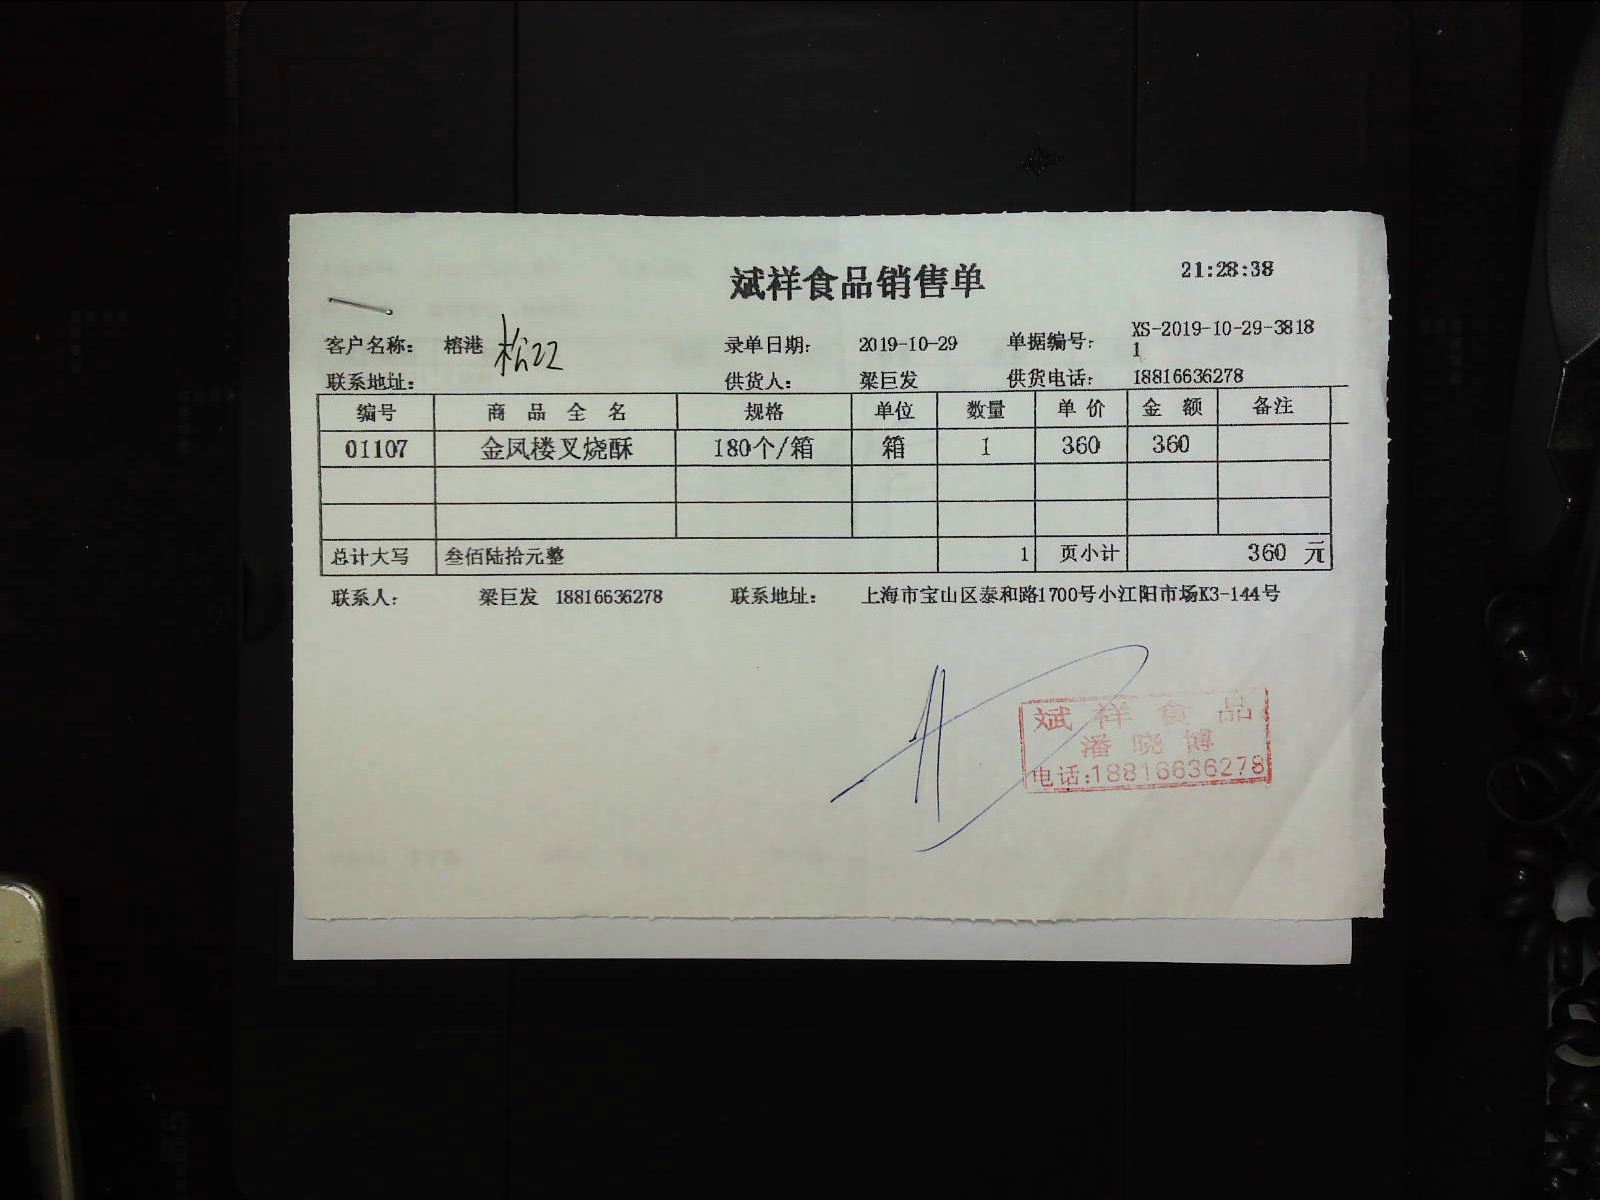 斌祥食品销售单
21:28:38
客户名称: 榕港 松江 录单日期: 2019-10-29 单据编号: XS-2019-10-29-3818
1
联系地址: 供货人: 梁巨发 供货电话: 18816636278
编号 商品全名 规格 单位 数量 单价 金额 备注
01107 金凤楼叉烧酥 180个/箱 箱 1 360 360
总计大写 叁佰陆拾元整 1 页小计 360 元
联系人: 梁巨发 18816636278 联系地址: 上海市宝山区泰和路1700号小江阳市场K3-144号
斌祥食品
潘晓博
电话:18816636278